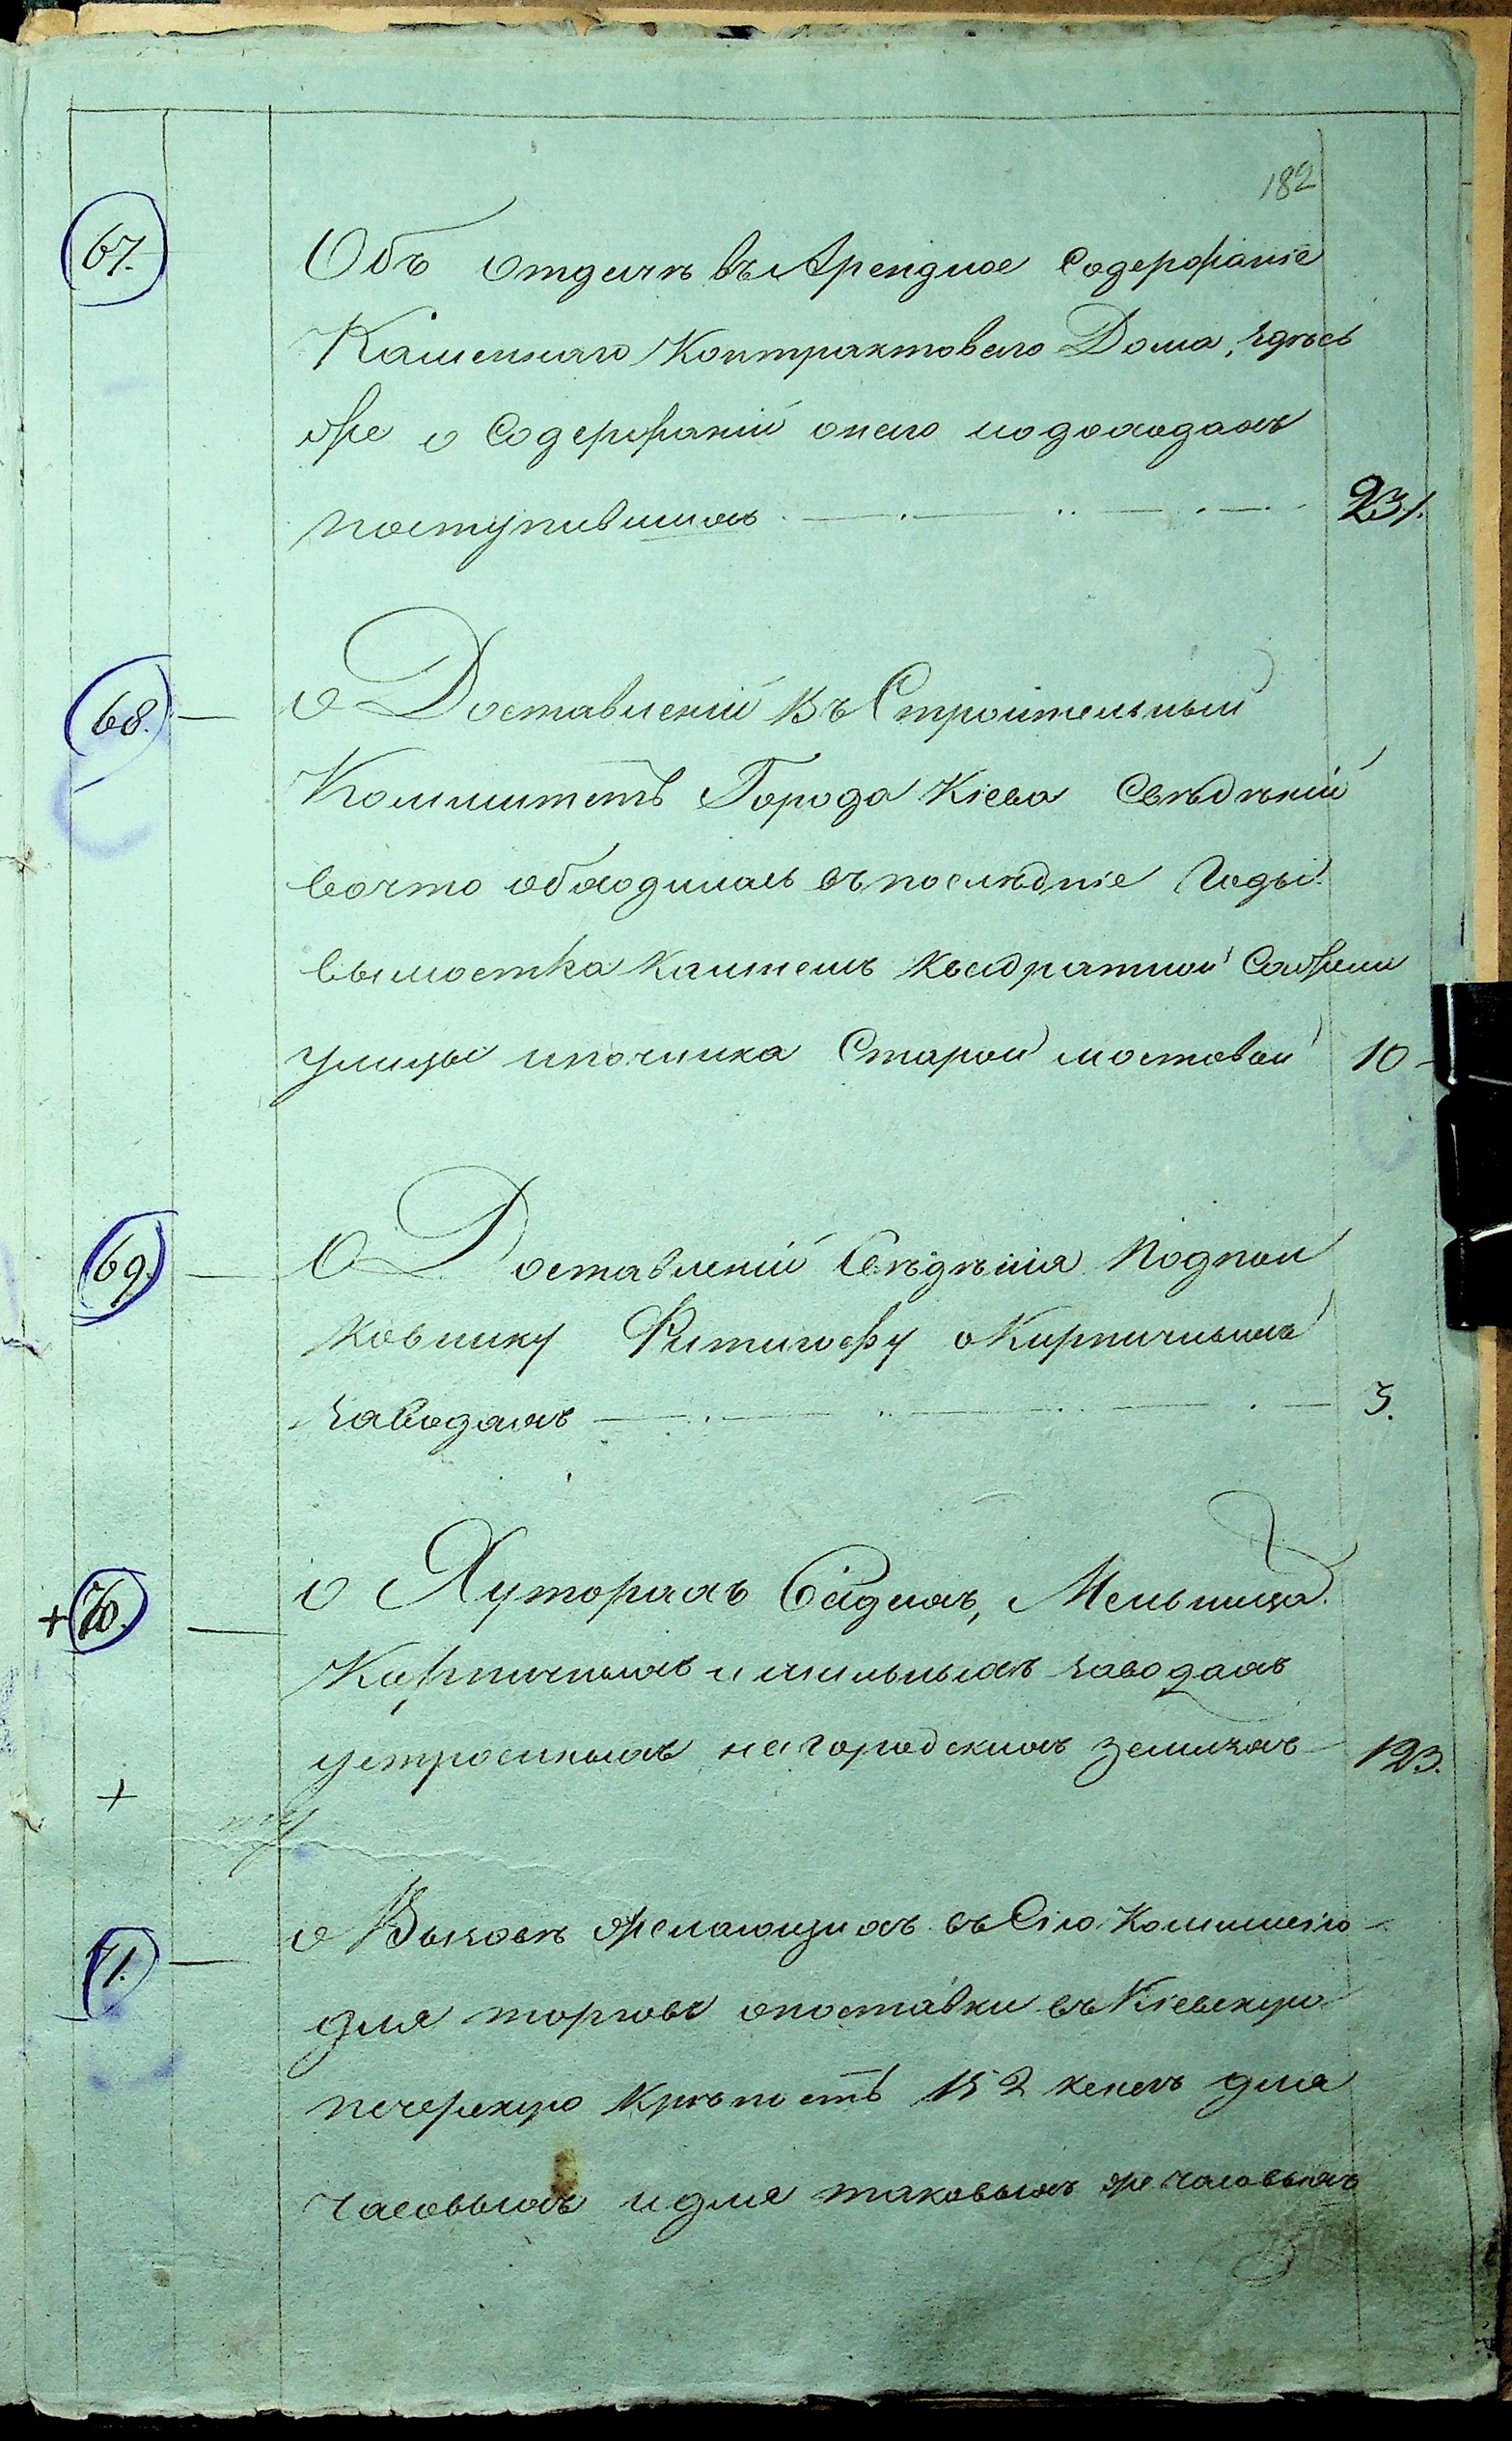 182
67. Объ отдачѣ въ Арендное Содержаніе
Каменнаго Контрактоваго Дома, здѣсь
же о Содержаніи онаго и о доходахъ
поступившихъ 231.
68. О Доставленій Въ Строительный
Коммитетъ Города Кіева Свѣдѣній
во что обходилась въ последніе Годы
вымостка камнемъ квадратной Сажени
улицы и починка Старой мостовой 10
69. О Доставленій Свѣдѣнія Подпол
ковнику о Кирпичныхъ
заводахъ 3.
+ 70. О Хуторахъ Садахъ, Мельница
Кирпичныхъ и мильныхъ заводахъ
устроенныхъ на городскихъ землихъ 123.
+
71. О Вызовѣ желающихъ въ Сію Коммисію
для торговъ о поставки въ Кіевскую
печерскую Крѣпость 152 кенегъ для
часовыхъ и для таковыхъ же часовыхъ